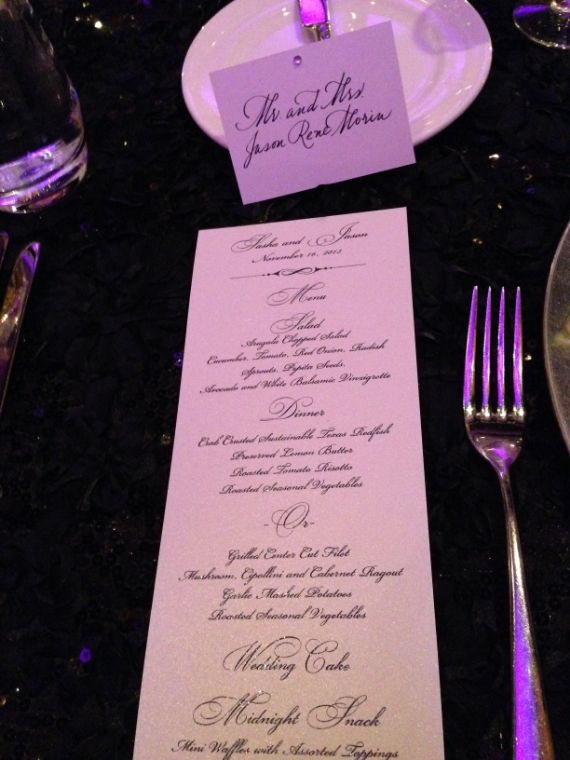 Mr. and Mrs.
Jason Rene Morin
Sasha and Jason
November 16, 2013
Menu
Salad
Arugula Chopped Salad
Cucumber, Tomato, Red Onion, Radish
Sprouts, Pepita Seeds,
Avocado and White Balsamic Vinaigrette
Dinner
Crab Crusted Sustainable Texas Redfish
Preserved Lemon Butter
Roasted Tomato Risotto
Roasted Seasonal Vegetables
-Or-
Grilled Center Cut Filet
Mushroom, Cipollini and Cabernet Ragout
Garlic Mashed Potatoes
Roasted Seasonal Vegetables
Wedding Cake
Midnight Snack
Mini Waffles with Assorted Toppings